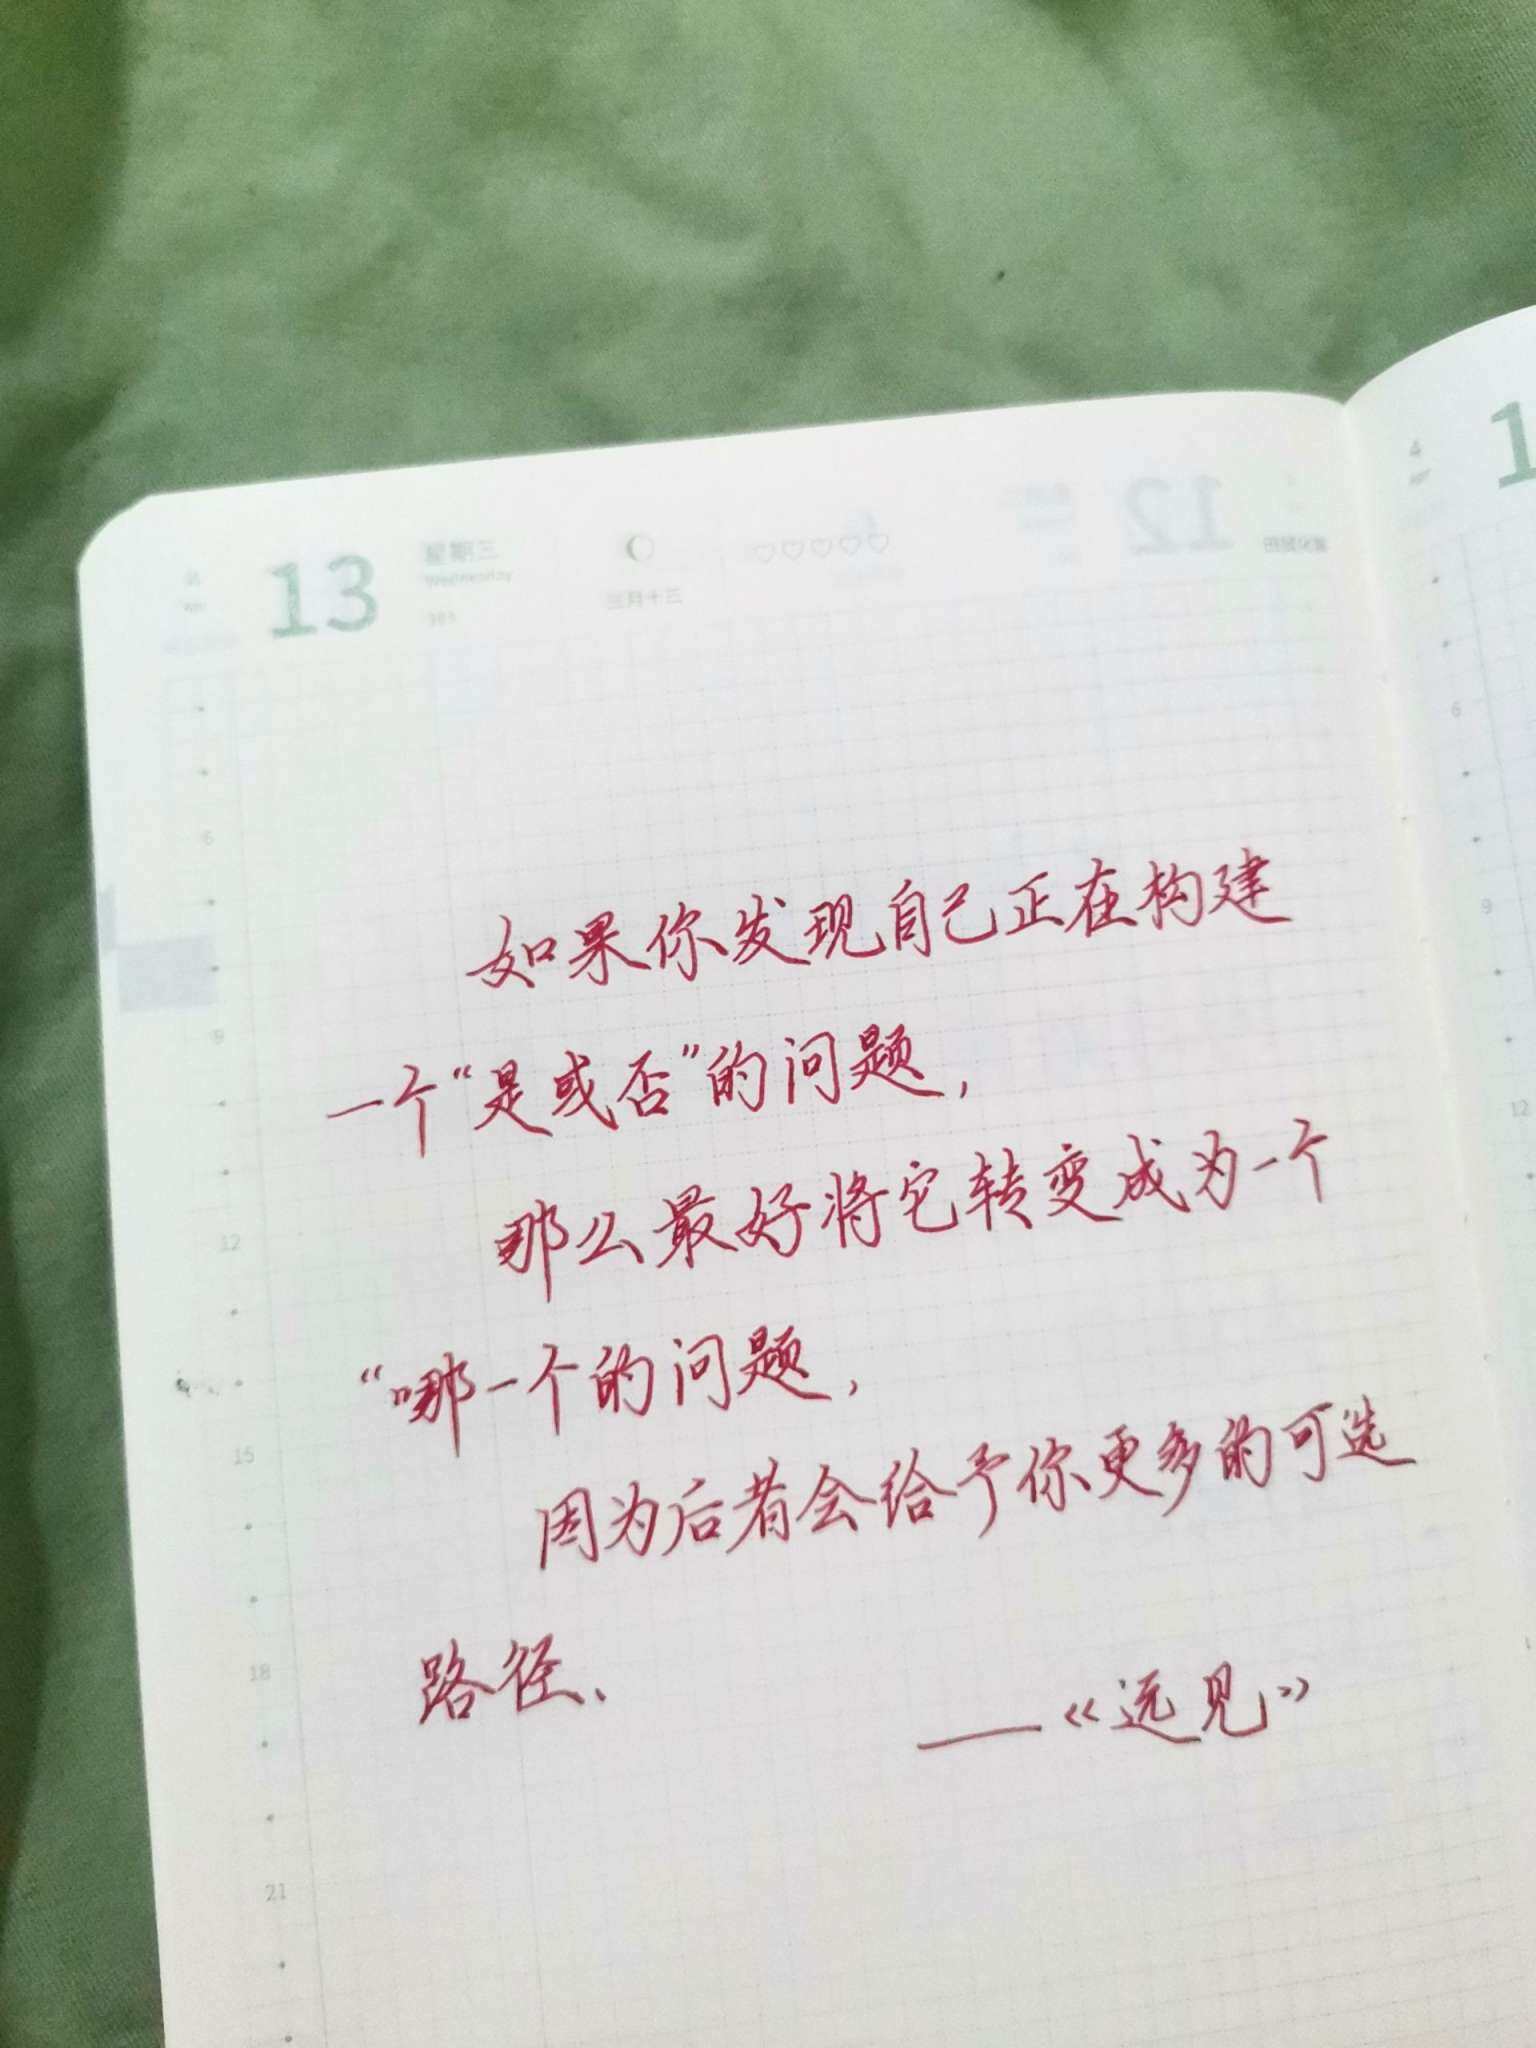 13
星期三
Wednesday
三月十三
12
1
如果你发现自己正在构建
一个“是或否”的问题,
那么最好将它转变成为一个
“哪一个的问题,
因为后者会给予你更多的可选
路径、
——《远见》
6
9
12
15
18
21
4
6
9
12